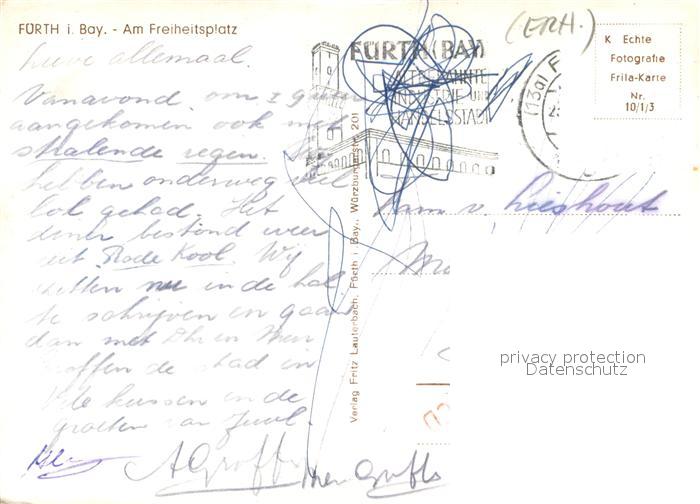 FÜRTH i. Bay. - Am Freiheitsplatz
(ERH.)
K Echte
Fotografie
Frila-Karte
Nr.
10/1/3
FÜRTH (BAY)
INDUSTRIE UND
HANDELSSTADT
(13a) F
Lieve allemaal.
Vanavond om
aangekomen ook met
stralende regen.
hebben onderweg veel
lol gehad. Het
diner bestond weer
uit Rode Kool. Wij
zitten nu in de hal
te schrijven en gaan
dan met Dhr en Mevr
Groffen de stad in
Vele kussen en de
groeten van
v. Lieshout
Verlag Fritz Lauterbach, Fürth i. Bay., Würzburgerstr. 201
privacy protection
Datenschutz